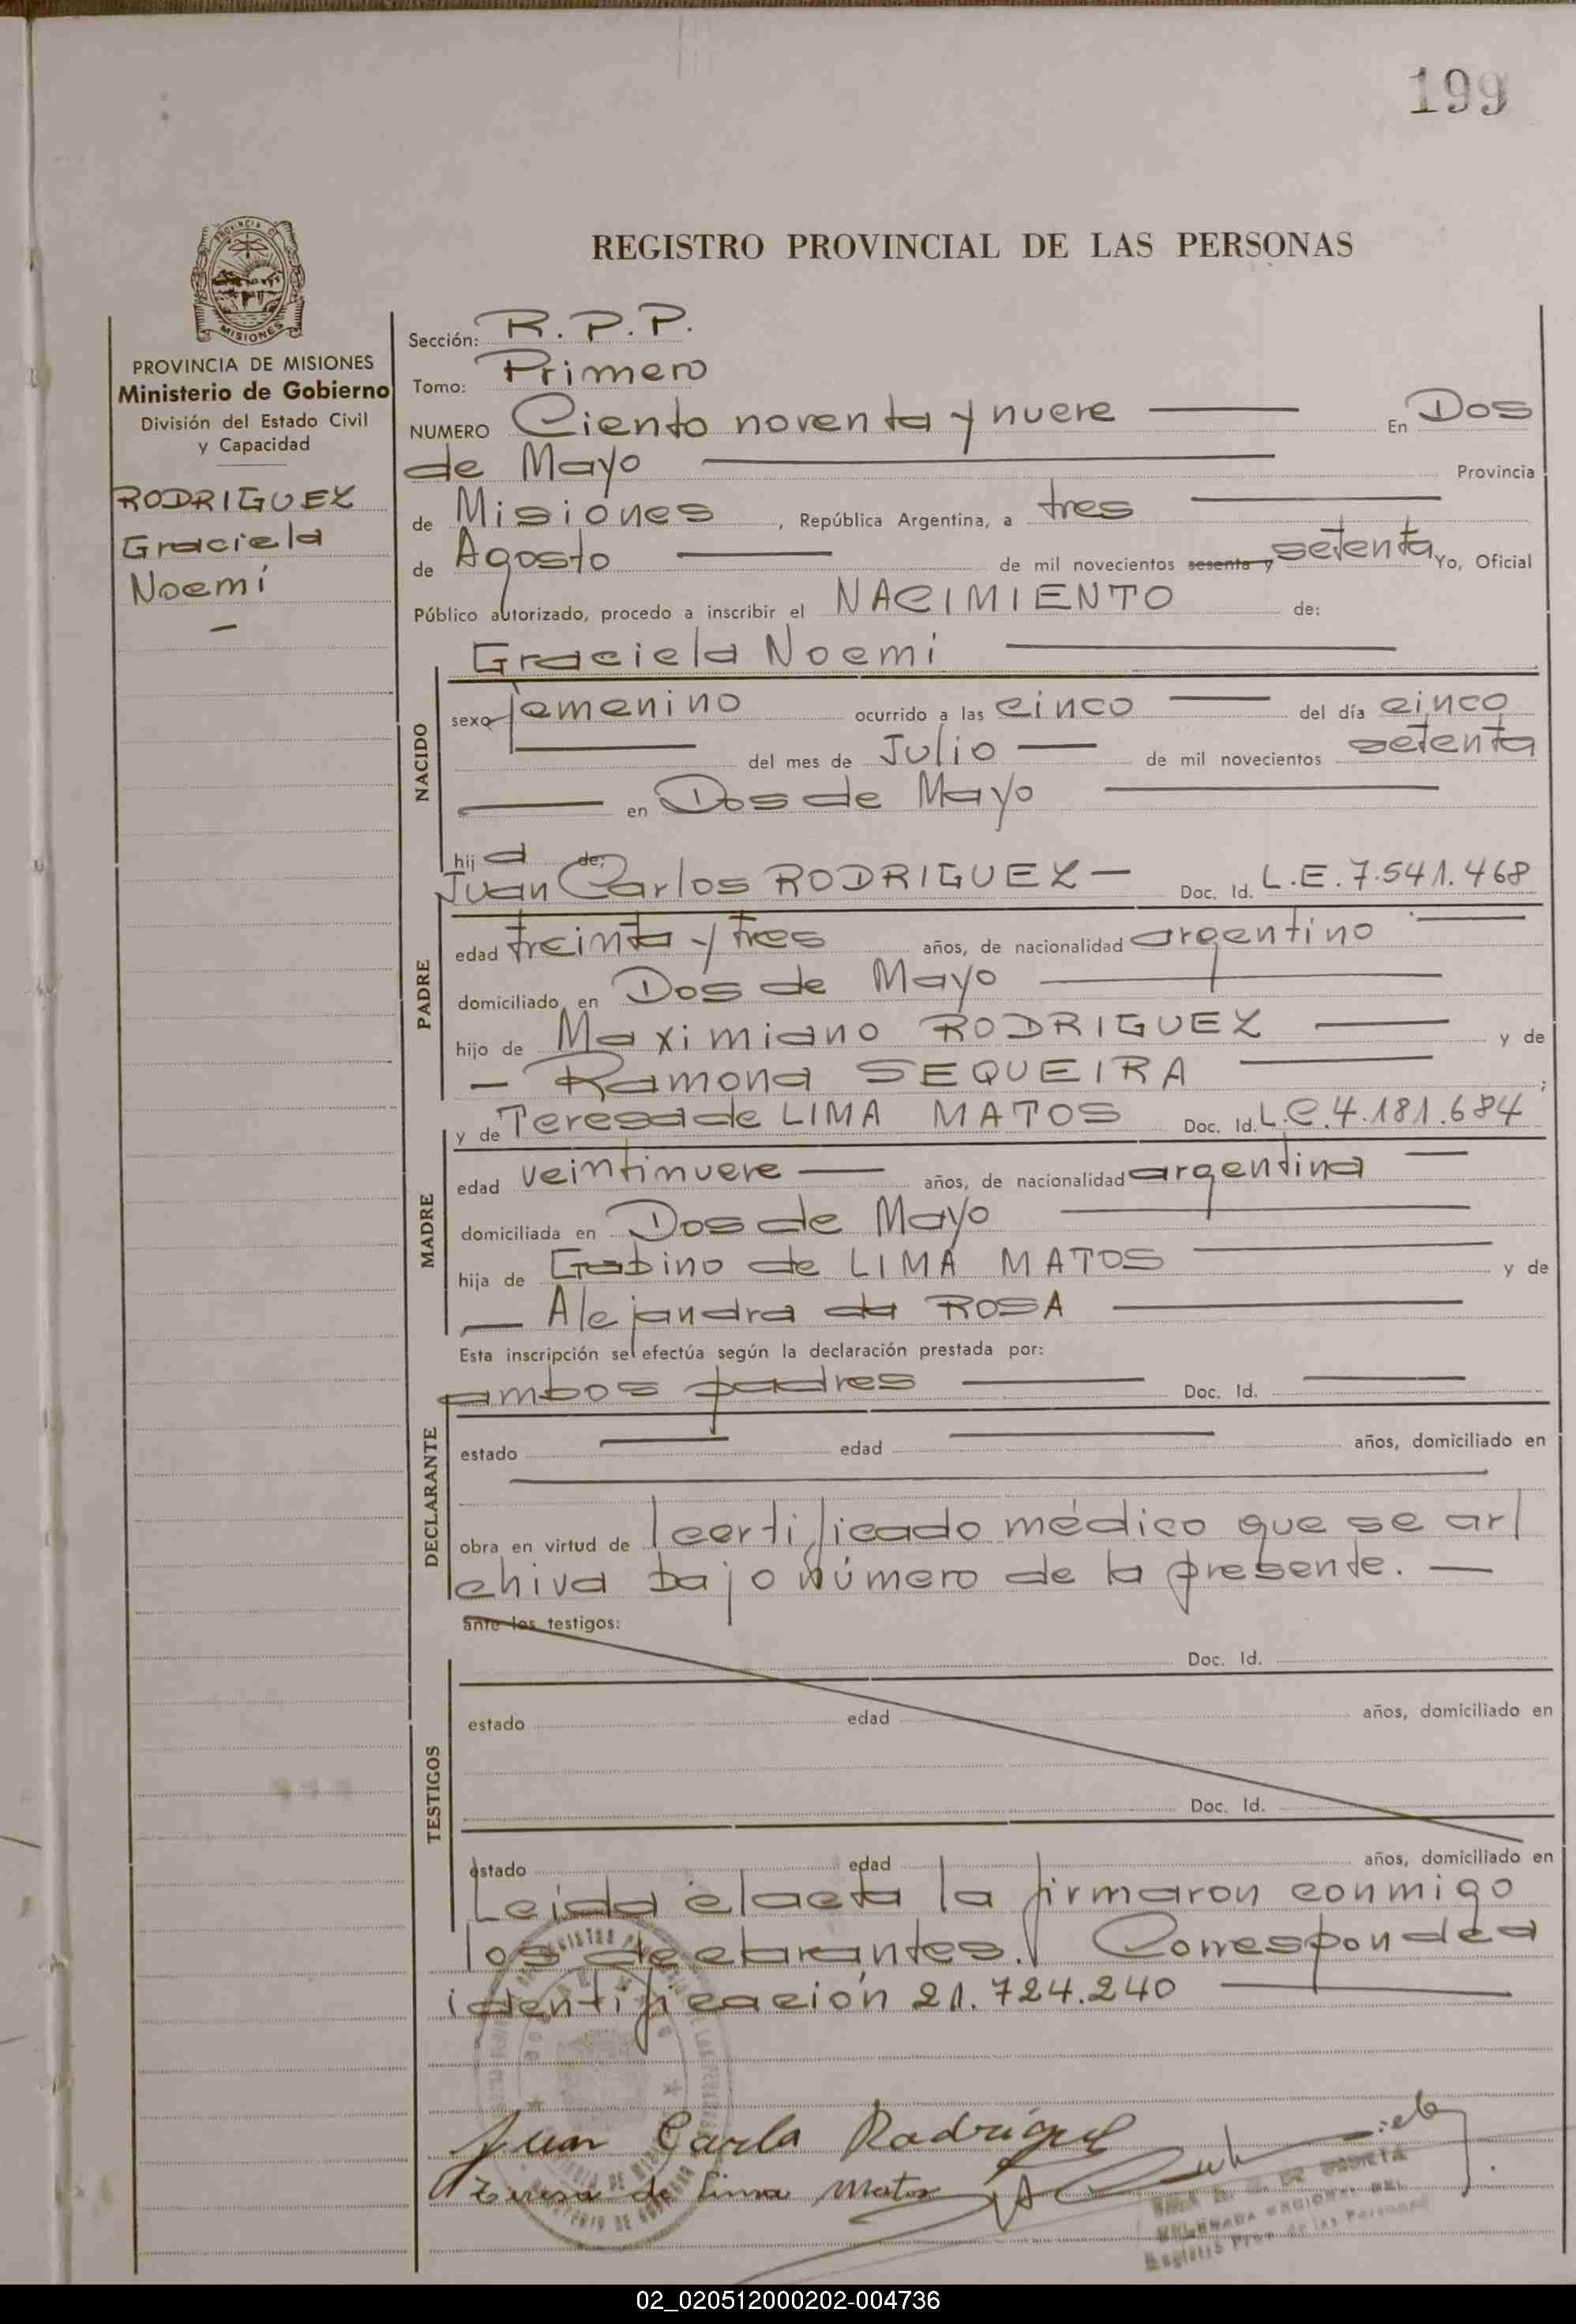 199
REGISTRO PROVINCIAL DE LAS PERSONAS
PROVINCIA DE MISIONES
Ministerio de Gobierno
División del Estado Civil
y Capacidad
RODRIGUEZ
Graciela
Noemí
Sección: R. P. P.
Tomo: Primero
NUMERO Ciento noventa y nueve En Dos
de Mayo Provincia
de Misiones, República Argentina, a tres
de Agosto de mil novecientos sesenta y setenta Yo, Oficial
Público autorizado, procedo a inscribir el NACIMIENTO de:
Graciela Noemi
NACIDO
sexo femenino ocurrido a las cinco del día cinco
del mes de Julio de mil novecientos setenta
en Dos de Mayo
hij a de:
Juan Carlos RODRIGUEZ — Doc. Id. L.E. 7.541.468
PADRE
edad treinta y tres años, de nacionalidad argentino
domiciliado en Dos de Mayo
hijo de Maximiano RODRIGUEZ y de
— Ramona SEQUEIRA ;
y de Teresa de LIMA MATOS Doc. Id. L.C. 4.181.684
MADRE
edad veintinueve años, de nacionalidad argentina
domiciliada en Dos de Mayo
hija de Gabino de LIMA MATOS y de
— Alejandra da ROSA
Esta inscripción se efectúa según la declaración prestada por:
ambos padres Doc. Id.
DECLARANTE
estado edad años, domiciliado en
obra en virtud de certificado médico que se ar
chiva bajo número de la presente. —
ante los testigos:
TESTIGOS
Doc. Id.
estado edad años, domiciliado en
Doc. Id.
estado edad años, domiciliado en
Leida el acta la firmaron conmigo
los declarantes. Corresponde a
identificación 21.724.240
Juan Carlo Rodriguez
Teresa de Lima Matos
02_020512000202-004736